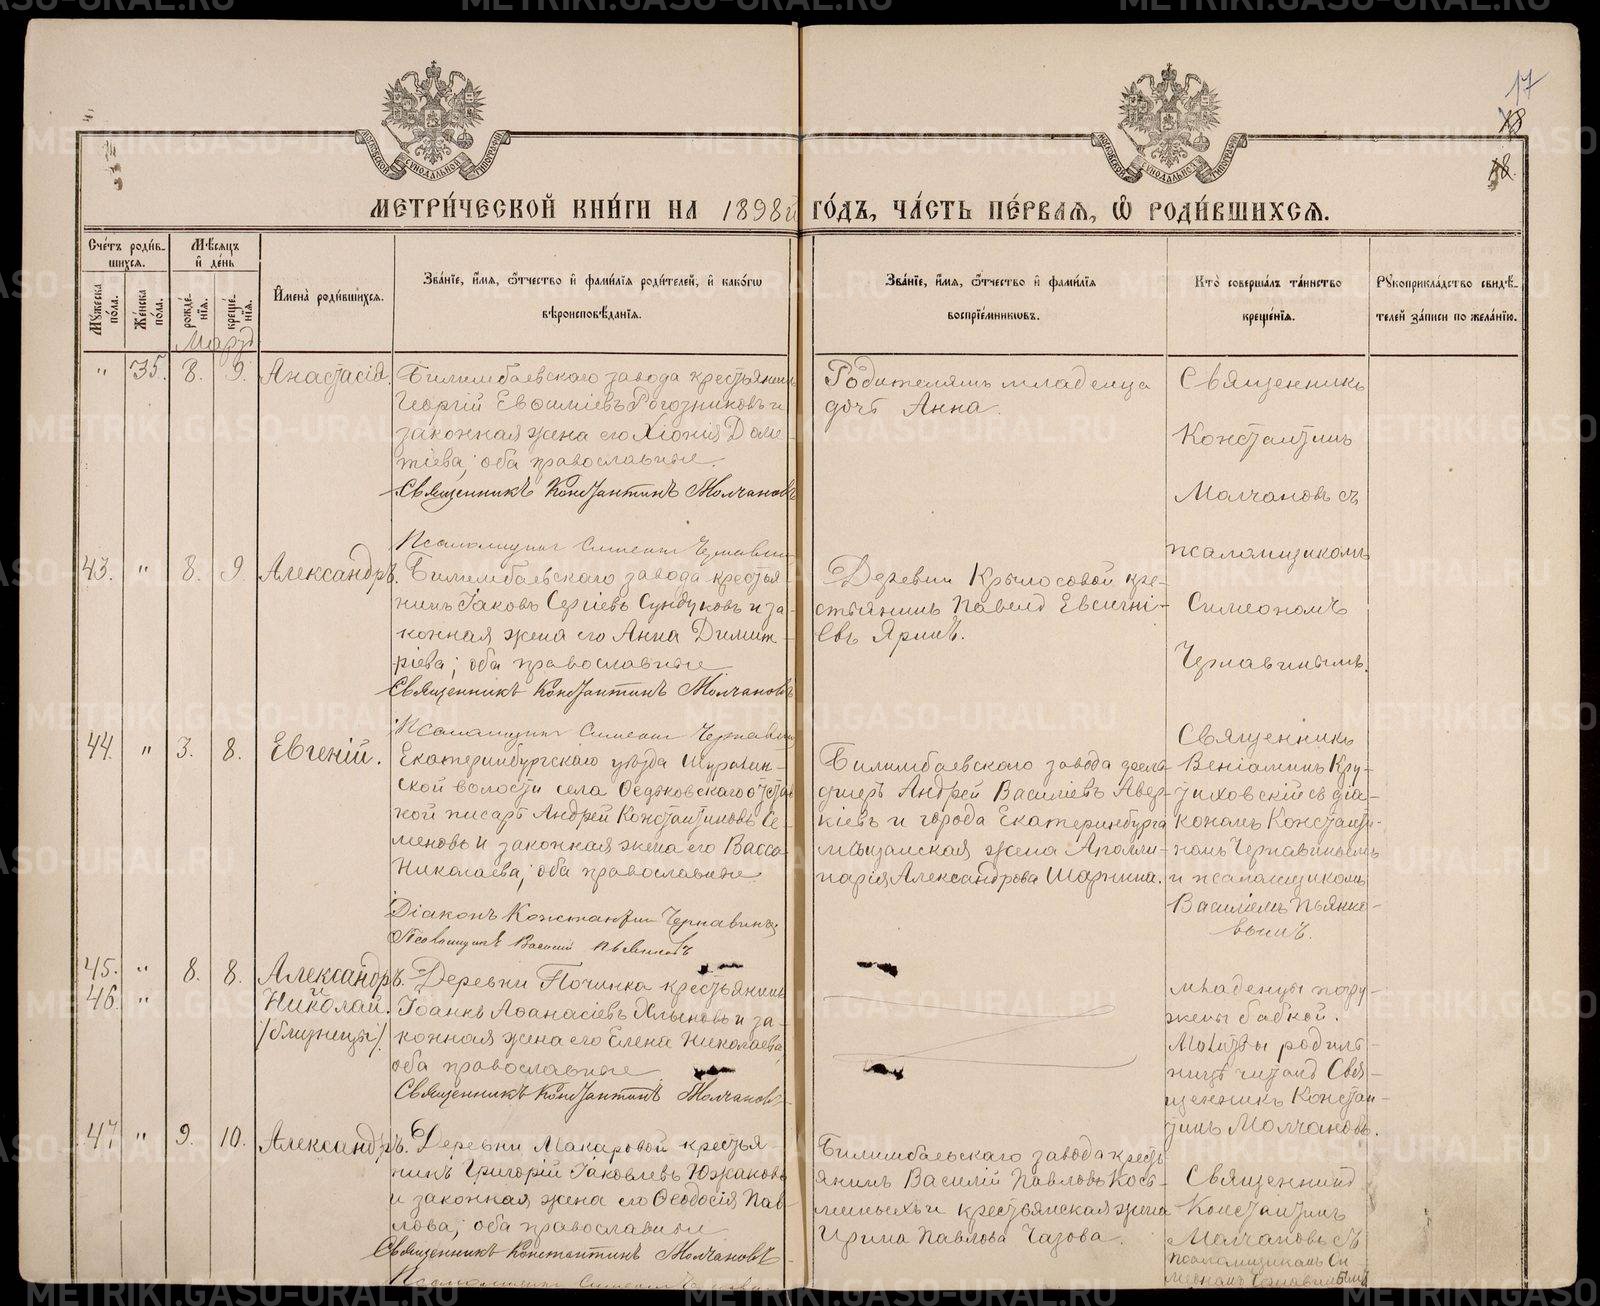 17
18
18.
МОСКОВСКОЙ СѴНОДАЛЬНОЙ ТИПОГРАФІИ
МОСКОВСКОЙ СѴНОДАЛЬНОЙ ТИПОГРАФІИ
МЕТРИ́ЧЕСКОЙ КНИ́ГИ НА 1898й ГО́ДЪ, ЧА́СТЬ ПЕ́РВАѦ, Ѡ҆ РОДИ́ВШИХСѦ.
Сче́тъ роди́в-
шихсѧ.
Мꙋжеска по́ла.
Же́нска по́ла.
Мѣ́сѧцъ
и҆ де́нь
рожде́-
нїѧ.
креще́-
нїѧ.
Мартъ
И҆мена̀ роди́вшихсѧ.
Зва́нїе, и҆́мѧ, ѻ҆́тчество и҆ фами́лїѧ роди́телей, и҆ како́гѡ
вѣроисповѣ́данїѧ.
Зва́нїе, и҆́мѧ, ѻ҆́тчество и҆ фами́лїѧ
воспрїе́мникѡвъ.
Кто̀ соверша́лъ та́инство
креще́нїѧ.
Рꙋкоприкла́дство свидѣ́-
телей за́писи по жела́нїю.
" 35. 8. 9. Анастасія.
Билимбаевскаго завода крестьянинъ
Георгій Евѳиміевъ Рогозниковъ и
законная жена его Хіонія Доме-
тіева; оба православные.
Священникъ Константинъ Молчановъ
Псаломщикъ Симеонъ Чернавинъ
Родителямъ младенца
дочь Анна.
Священникъ
Константинъ
Молчановъ съ
псаломщикомъ
Симеономъ
Чернавинымъ.
43. " 8. 9. Александръ.
Билимбаевскаго завода крестья-
нинъ Іаковъ Сергіевъ Сундуковъ и за-
конная жена его Анна Димит-
ріева; оба православные
Священникъ Константинъ Молчановъ
Псаломщикъ Симеонъ Чернавинъ
Деревни Крылосовой кре-
стьянинъ Павелъ Евсигні-
евъ Яринъ.
44. " 3. 8. Евгеній.
Екатеринбургскаго уѣзда
ской волости села отстав-
ной писарь Андрей Константиновъ Се-
меновъ и законная жена его Васса
Николаева; оба православные
Діаконъ Константинъ Чернавинъ
Псаломщикъ Василій Пьянковъ
Билимбаевскаго завода фельд-
шеръ Андрей Василіевъ Авер-
кіевъ и города Екатеринбурга
мѣщанская жена Аполли-
нарія Александрова
Священникъ
Веніаминъ
съ діа-
кономъ Константи-
номъ Чернавинымъ
и псаломщикомъ
Василіемъ Пьянко-
вымъ.
45. " 8. 8. Александръ.
46. " Николай.
/близнецы/
Деревни Починка крестьянинъ
Іоаннъ Аѳанасіевъ и за-
конная жена его Елена Николаева,
оба православные
Священникъ Константинъ Молчановъ
младенцы погру-
жены бабкой.
Молитвы родиль-
ницѣ читалъ Свя-
щенникъ Констан-
тинъ Молчановъ.
47 " 9. 10. Александръ.
Деревни Макаровой крестья-
нинъ Григорій Іаковлевъ Южаковъ
и законная жена его Ѳеодосія Пав-
лова; оба православные
Священникъ Константинъ Молчановъ
Псаломщикъ Симеонъ Чернавинъ
Билимбаевскаго завода кресть-
янинъ Василій Павловъ Кось-
миныхъ и крестьянская жена
Ирина Павлова Чазова.
Священникъ
Константинъ
Молчановъ съ
псаломщикомъ Си-
меономъ Чернавинымъ